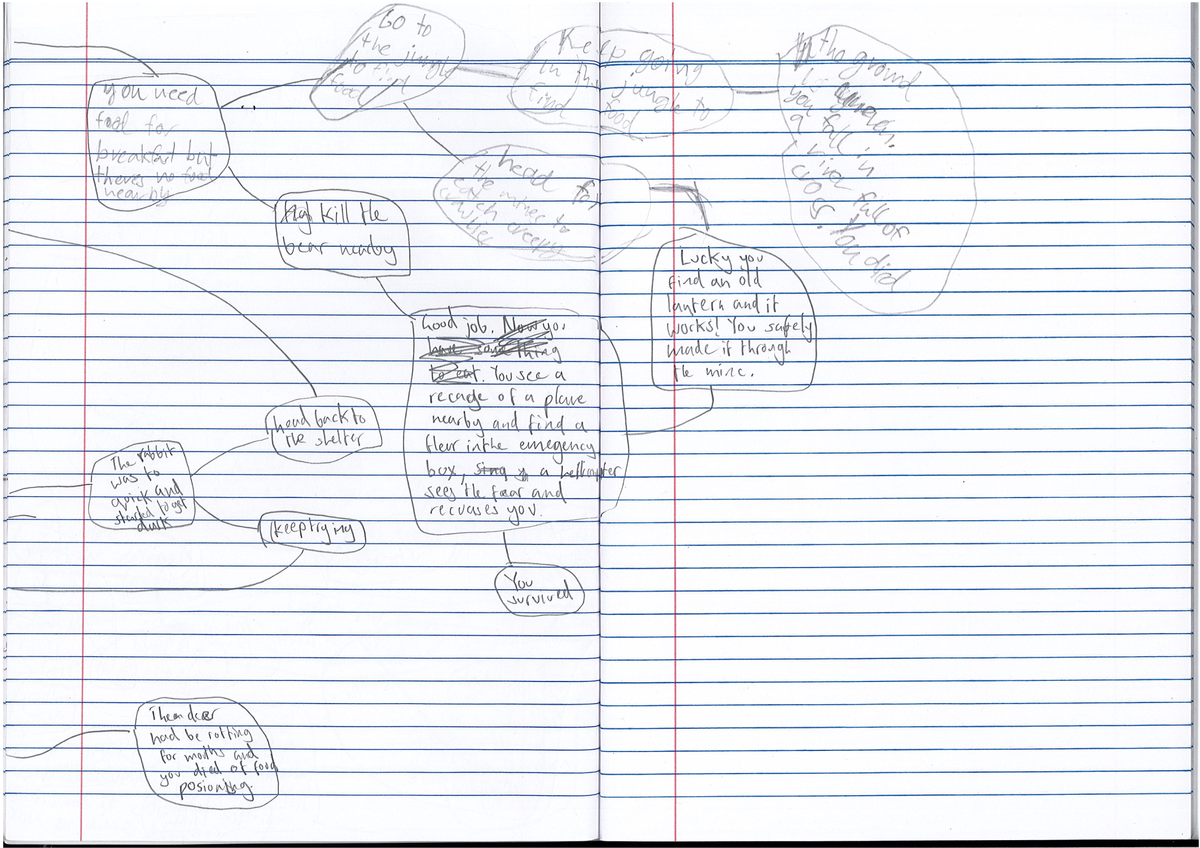 you need
food for
breakfast but
theres no food
nearby
Go to
the jungle
to find
food
Keep going
in the jungle to
find food
In the ground
you fall in
a river full of
crocs. You died
kill the
bear nearby
head for
the mines to
catch creepy
crawlies
Lucky you
find an old
lantern and it
works! You safely
made it through
the mine.
Good job. Now you
have something
to eat. You see a
recage of a plane
nearby and find a
fleur in the emegency
box, a helicopter
sees the fear and
recuases you.
You
survived
head back to
the shelter
The rabbit
was to
quick and
started to get
dusk
keep trying
The deer
had be rotting
for moths and
you died of food
posionting.